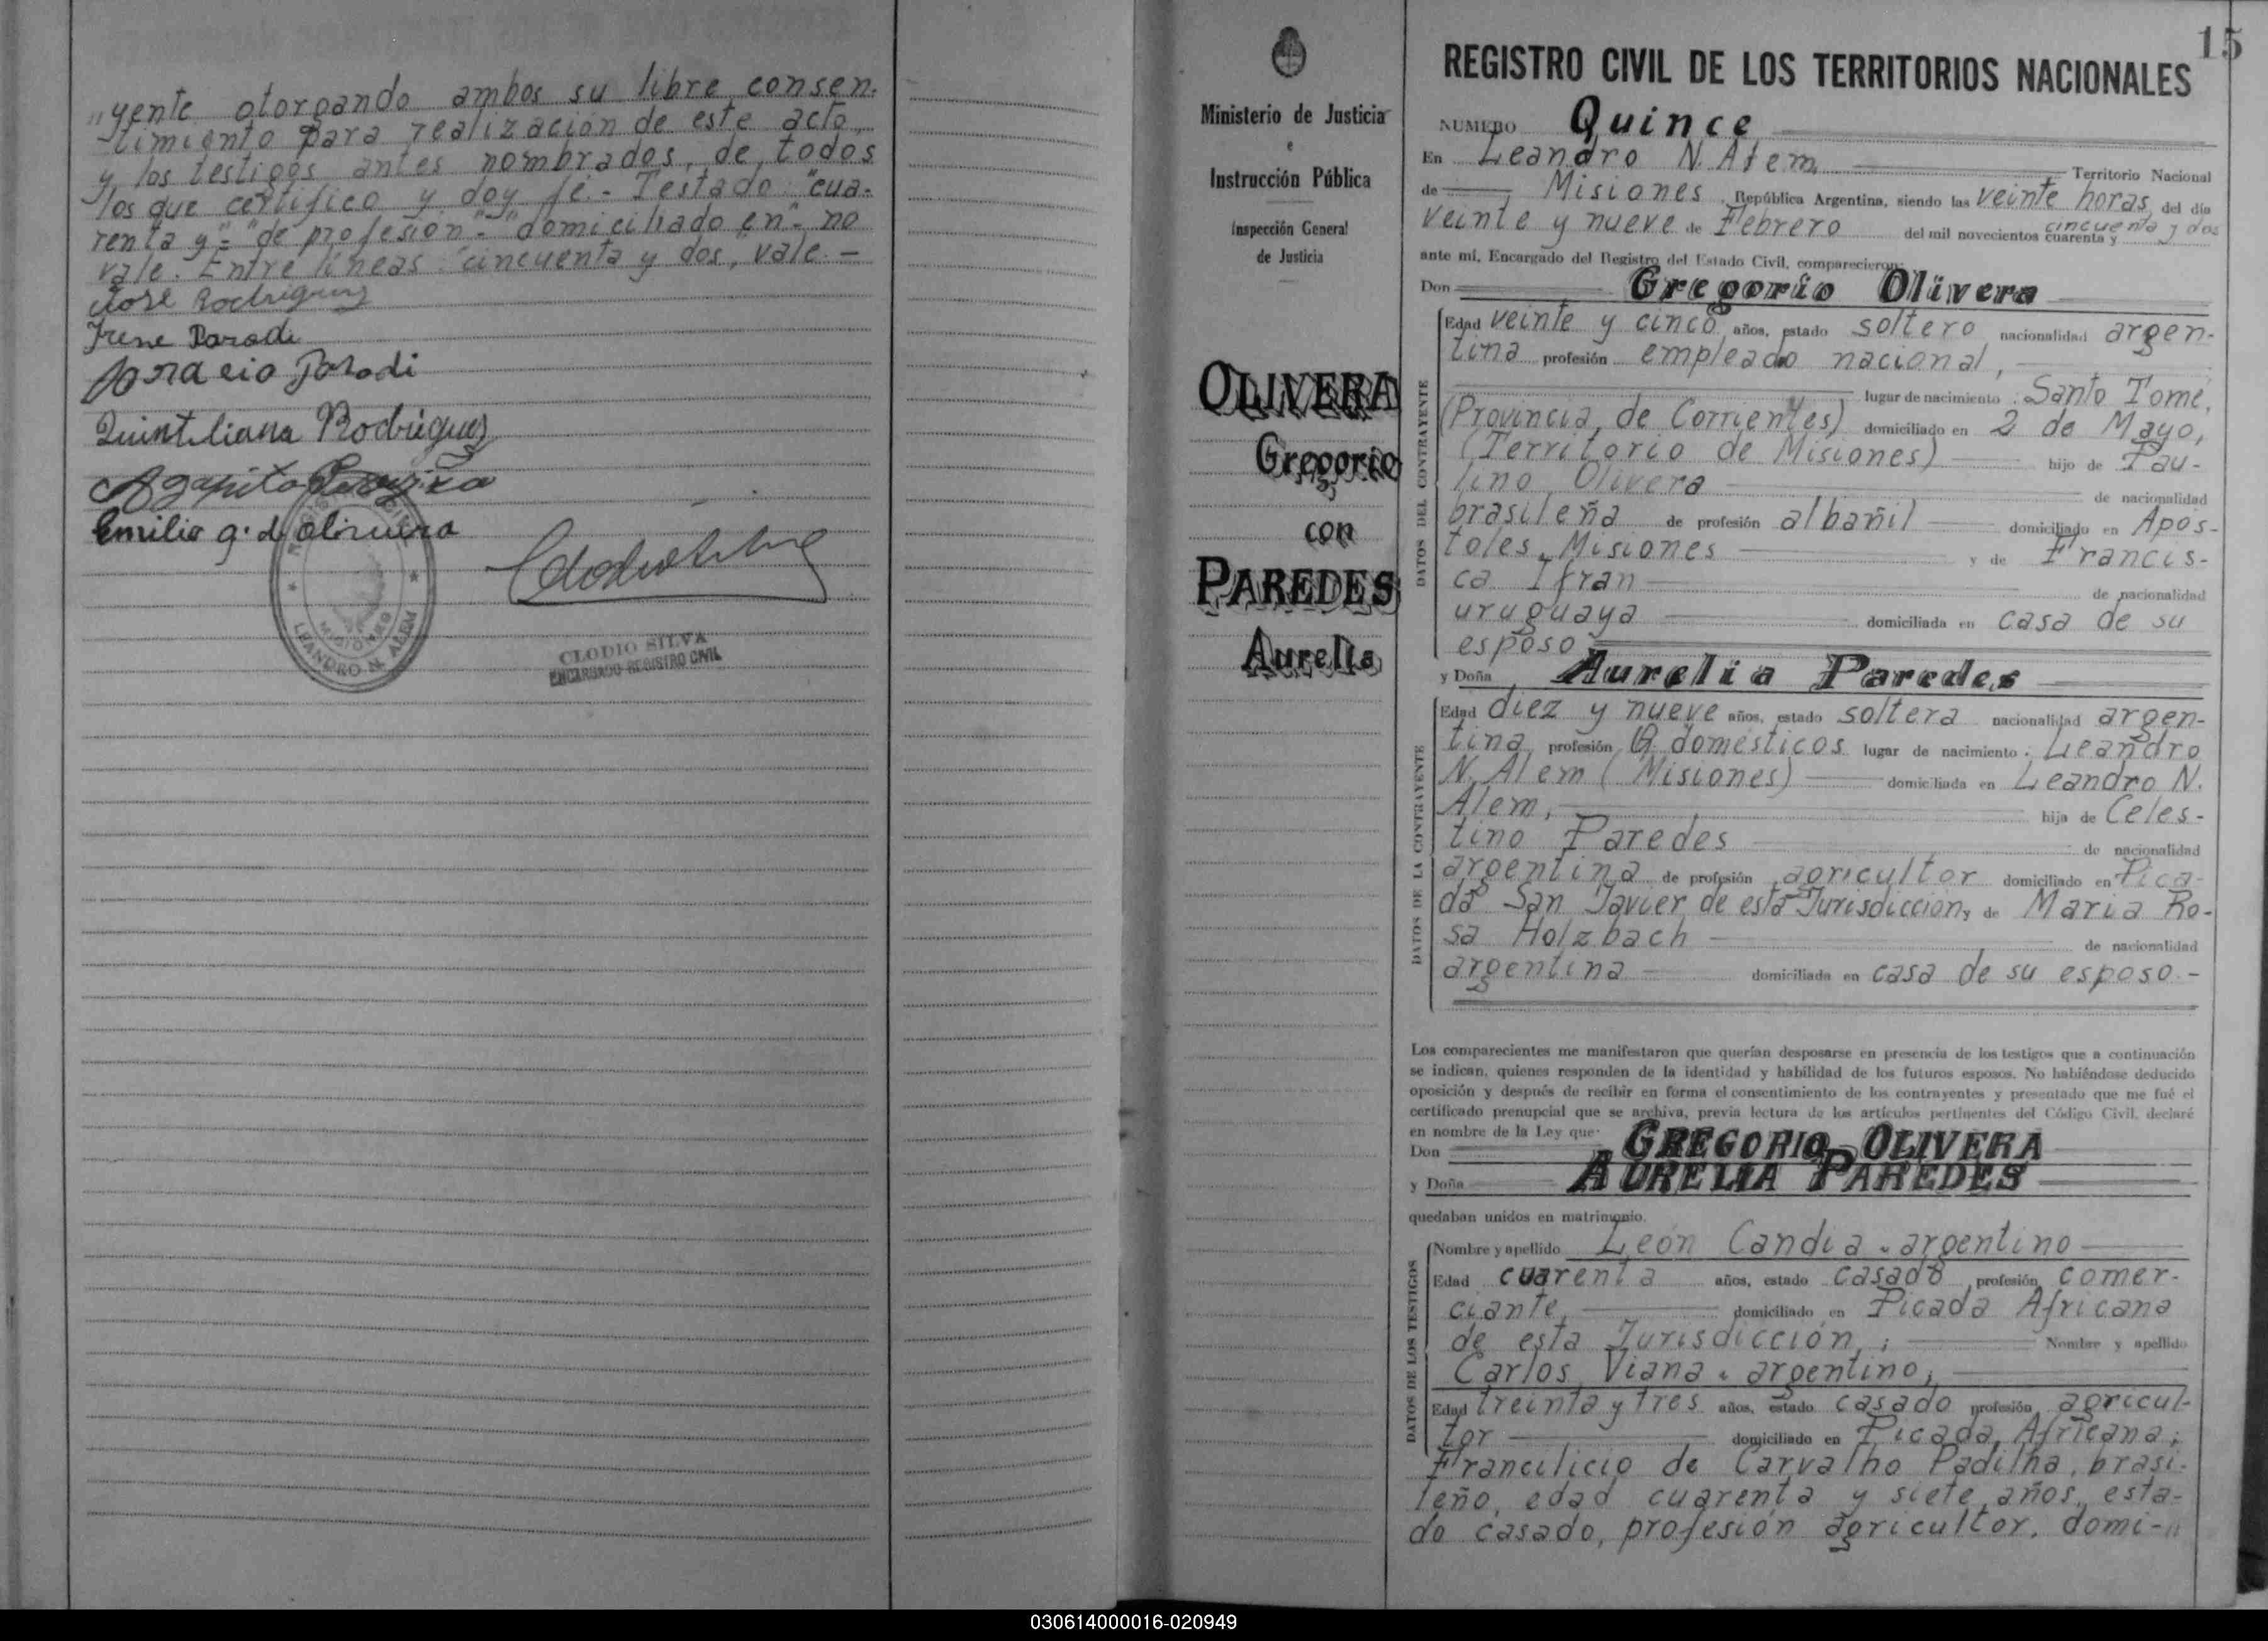 "yente otorgando ambos su libre consen-
timiento para realización de este acto,
y los testigos antes nombrados, de todos
los que certifico y doy fé.- Testado: "cua-
renta y"= "de profesión"= "domiciliado en"= no
vale. Entre líneas: "cincuenta y dos", vale.-
José Rodriguez
Irene Parodi
Horacio Parodi
Quintiliana Rodriguez
Emilio g. d. Oliveira
LEANDRO N. ALEM
CLODIO SILVA
ENCARGADO REGISTRO CIVIL
15
Ministerio de Justicia
e
Instrucción Pública
Inspección General
de Justicia
OLIVERA
Gregorio
con
PAREDES
Aurelia
REGISTRO CIVIL DE LOS TERRITORIOS NACIONALES
NUMERO Quince
En Leandro N. Alem Territorio Nacional
de Misiones, República Argentina, siendo las veinte horas, del día
veinte y nueve de Febrero del mil novecientos cuarenta y cincuenta y dos
ante mí, Encargado del Registro del Estado Civil, comparecieron:
Don Gregorio Olivera
DATOS DEL CONTRAYENTE
Edad veinte y cinco años, estado soltero nacionalidad argen-
tina profesión empleado nacional,
lugar de nacimiento: Santo Tomé,
(Provincia de Corrientes) domiciliado en 2 de Mayo,
(Territorio de Misiones) hijo de Pau-
lino Olivera de nacionalidad
brasileña de profesión albañil domiciliado en Após-
toles, Misiones y de Francis-
ca Ifran de nacionalidad
uruguaya domiciliada en casa de su
esposo
y Doña Aurelia Paredes
DATOS DE LA CONTRAYENTE
Edad diez y nueve años, estado soltera nacionalidad argen-
tina profesión Q. domésticos lugar de nacimiento: Leandro
N. Alem (Misiones) domiciliada en Leandro N.
Alem, hija de Celes-
tino Paredes de nacionalidad
argentina de profesión agricultor domiciliado en Pica-
da San Javier de esta Jurisdicción y de Maria Ro-
sa Holzbach de nacionalidad
argentina domiciliada en casa de su esposo.-
Los comparecientes me manifestaron que querían desposarse en presencia de los testigos que a continuación
se indican, quienes responden de la identidad y habilidad de los futuros esposos. No habiéndose deducido
oposición y después de recibir en forma el consentimiento de los contrayentes y presentado que me fué el
certificado prenupcial que se archiva, previa lectura de los artículos pertinentes del Código Civil, declaré
en nombre de la Ley que:
Don GREGORIO OLIVERA
y Doña AURELIA PAREDES
quedaban unidos en matrimonio.
DATOS DE LOS TESTIGOS
Nombre y apellido León Candia - argentino
Edad cuarenta años, estado casado profesión comer-
ciante, domiciliado en Picada Africana
de esta Jurisdicción; Nombre y apellido
Carlos Viana - argentino,
Edad treinta y tres años, estado casado profesión agricul-
tor domiciliado en Picada Africana;
Francilicio de Carvalho Padilha, brasi-
leño, edad cuarenta y siete años, esta-
do casado, profesión agricultor, domi-"
030614000016-020949